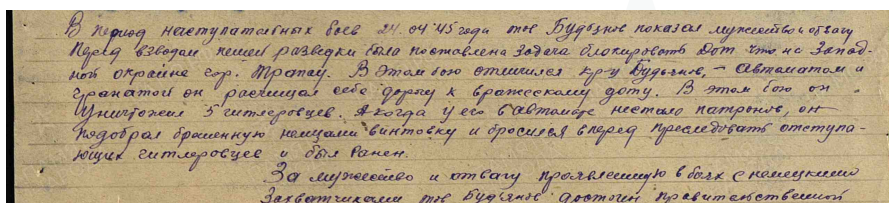 В период наступательных боев 24.04.45 года тов Будьянов показал мужество и отвагу
Перед взводом пешей разведки была поставлена задача блокировать Дот что на Запад-
ной окраине гор. Трапау. В этом бою отличился кр-ц Будьянов, – Автоматом и
гранатой он расчищал себе дорогу к вражескому доту. В этом бою он
Уничтожил 5 гитлеровцев. А когда у его в автомате нестало патронов, он
подобрал брошенную немцами винтовку и бросился вперед преследовать отступа-
ющих гитлеровцев и был ранен.
За мужество и отвагу проявленную в боях с немецкими
Захватчиками тов Будьянов достоин правительственной